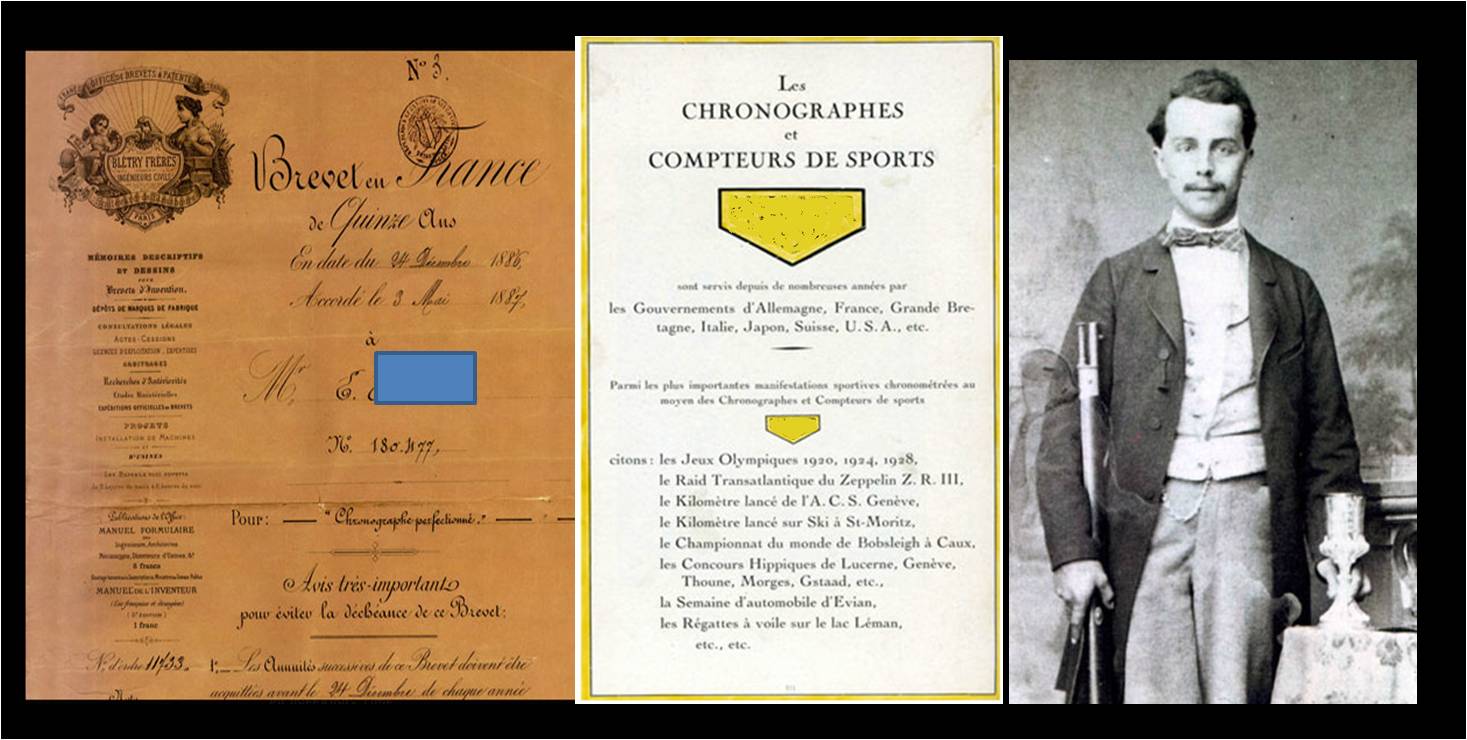 N° 3.
OFFICE DE BREVETS & PATENTES
BLÉTRY FRÈRES
INGÉNIEURS CIVILS
PARIS
Brevet en France
de Quinze Ans
En date du 24 Décembre 1886,
Accordé le 3 Mai 1887,
à
Mr E.
N° 180.477,
Pour: — "Chronographe perfectionné." —
Avis très-important
pour éviter la déchéance de ce Brevet:
1°_ Les Annuités successives de ce Brevet doivent être
acquittées avant le 24 Décembre de chaque année
MÉMOIRES DESCRIPTIFS
ET DESSINS
POUR
Brevets d'Invention.
DÉPÔTS DE MARQUES DE FABRIQUE
CONSULTATIONS LÉGALES
ACTES-CESSIONS
LICENCES D'EXPLOITATION, EXPERTISES
ARBITRAGES
Recherches d'Antériorités
Etudes Ministérielles
EXPÉDITIONS OFFICIELLES DE BREVETS
PROJETS
INSTALLATION DE MACHINES
ET
D'USINES
Publications de l'Office:
MANUEL FORMULAIRE
Ingénieurs, Architectes
6 francs
MANUEL DE L'INVENTEUR
(Lois françaises et étrangères)
1 franc
N° d'ordre 11733.
Les
CHRONOGRAPHES
et
COMPTEURS DE SPORTS
sont servis depuis de nombreuses années par
les Gouvernements d'Allemagne, France, Grande Bre-
tagne, Italie, Japon, Suisse, U.S.A., etc.
Parmi les plus importantes manifestations sportives chronométrées au
moyen des Chronographes et Compteurs de sports
citons : les Jeux Olympiques 1920, 1924, 1928,
le Raid Transatlantique du Zeppelin Z. R. III,
le Kilomètre lancé de l'A. C. S. Genève,
le Kilomètre lancé sur Ski à St-Moritz,
le Championnat du monde de Bobsleigh à Caux,
les Concours Hippiques de Lucerne, Genève,
Thoune, Morges, Gstaad, etc.,
la Semaine d'automobile d'Evian,
les Régattes à voile sur le lac Léman,
etc., etc.